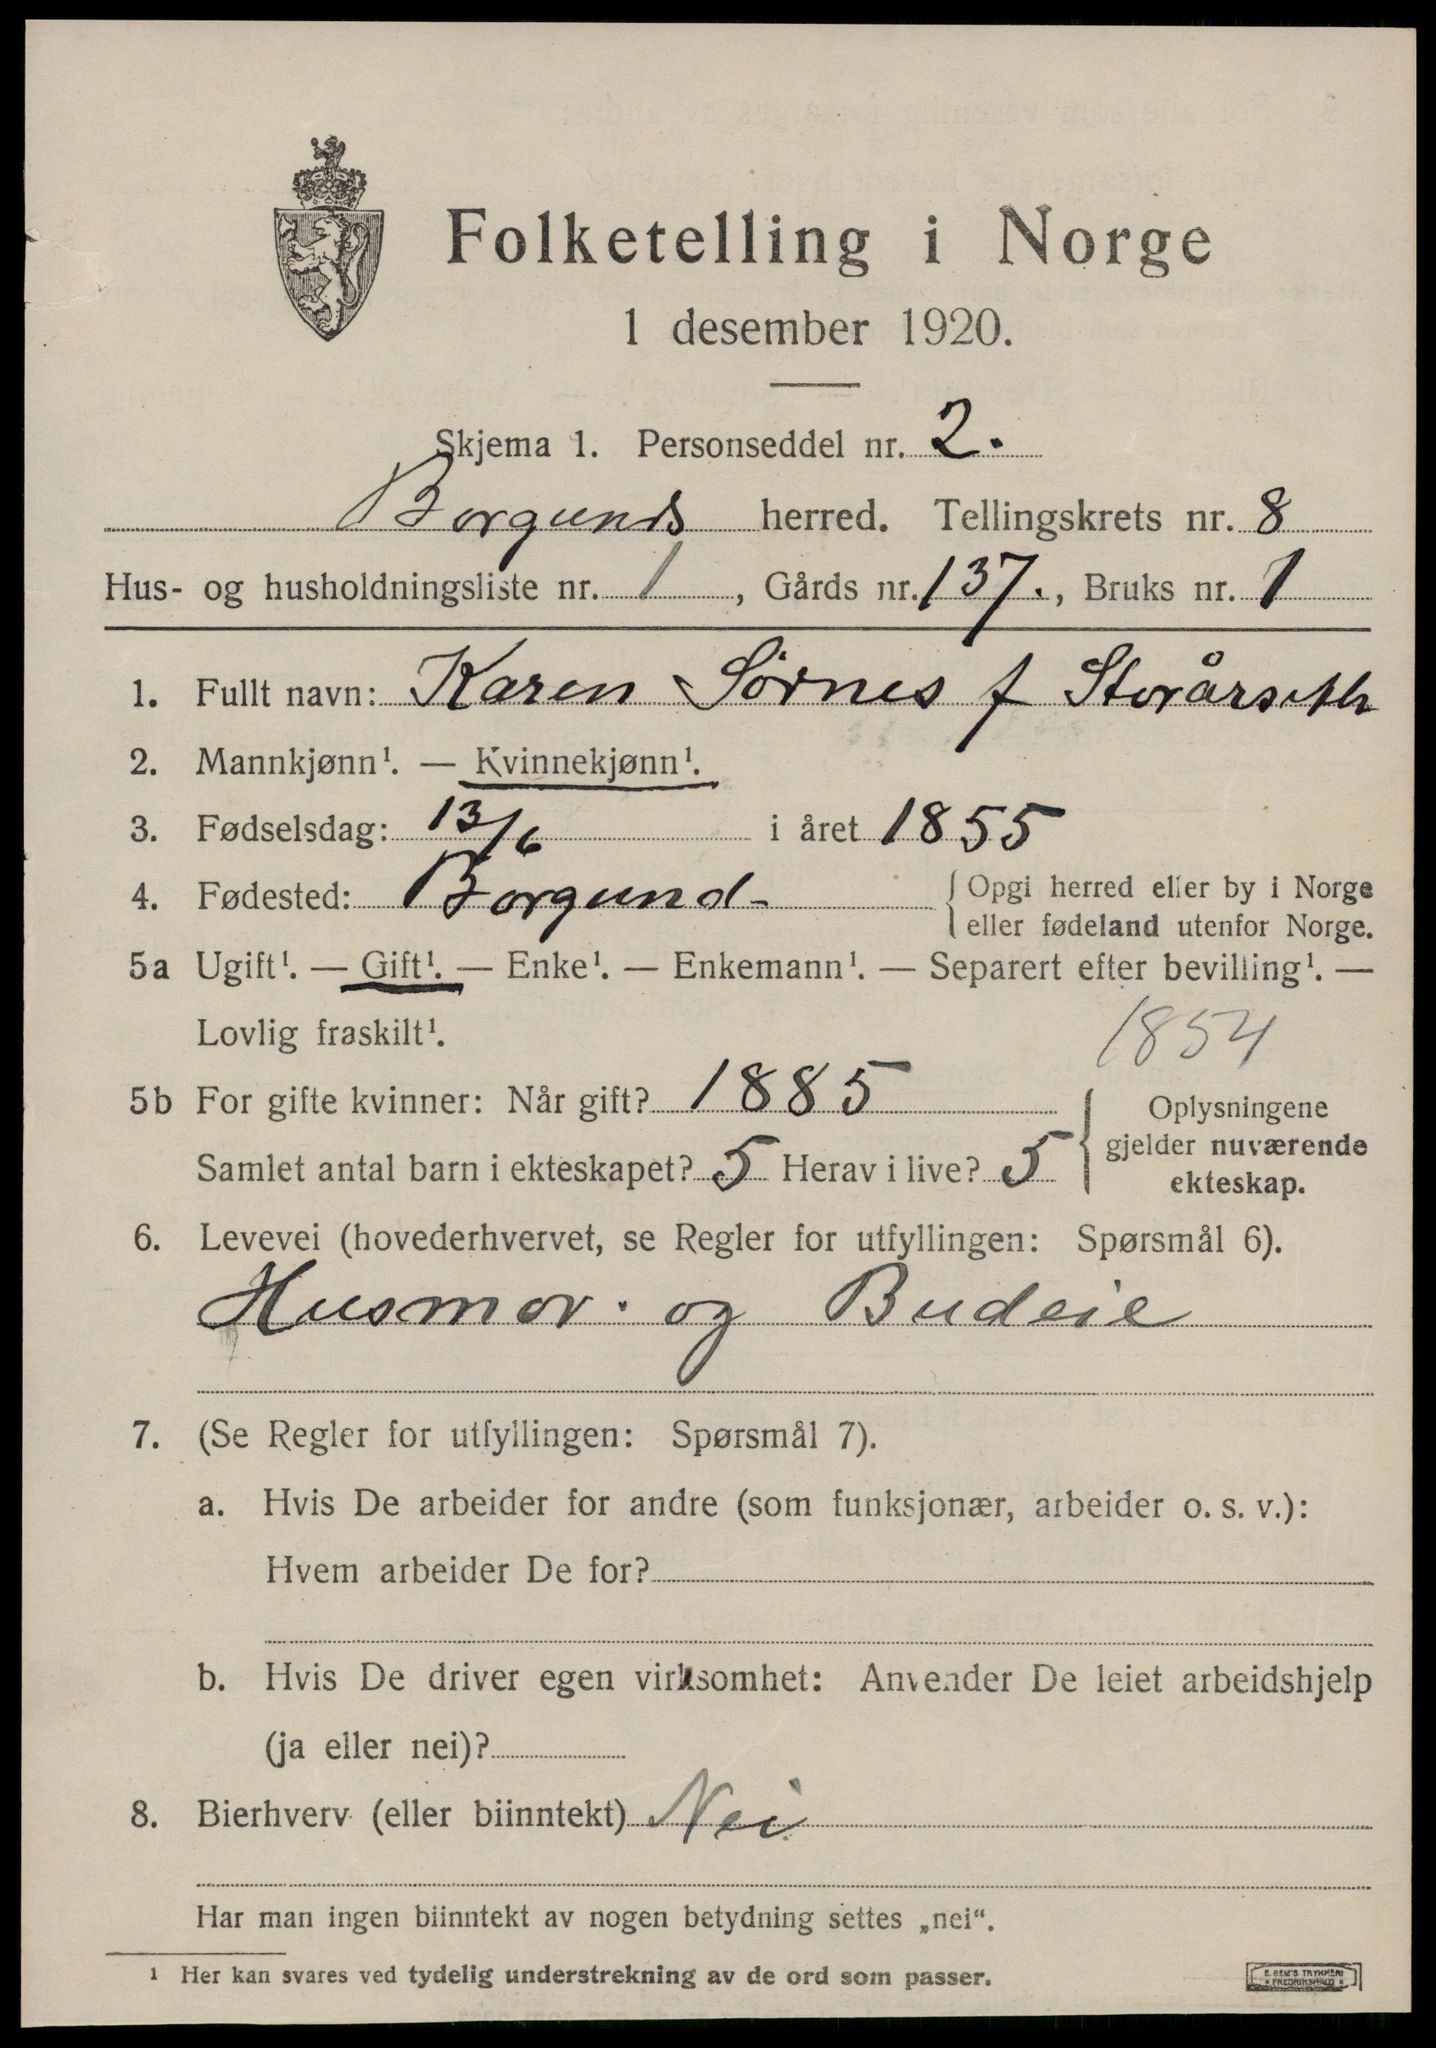 Folketelling i Norge
1 desember 1920.
Skjema 1. Personseddel nr. 2.
Borgunds herred. Tellingskrets nr. 8
Hus- og husholdningsliste nr. 1, Gårds nr. 137., Bruks nr. 1
1. Fullt navn: Karen Sørnes f Storårseth
2. Mannkjønn¹. — Kvinnekjønn¹.
3. Fødselsdag: 13/6 i året 1855
4. Fødested: Borgund - { Opgi herred eller by i Norge
eller fødeland utenfor Norge.
5a Ugift¹. — Gift¹. — Enke¹. — Enkemann¹. — Separert efter bevilling¹. —
Lovlig fraskilt¹.
1854
5b For gifte kvinner: Når gift? 1885
Samlet antal barn i ekteskapet? 5 Herav i live? 5
Oplysningene
gjelder nuværende
ekteskap.
6. Levevei (hovederhvervet, se Regler for utfyllingen: Spørsmål 6).
Husmor. og Budeie
7. (Se Regler for utfyllingen: Spørsmål 7).
a. Hvis De arbeider for andre (som funksjonær, arbeider o. s. v.):
Hvem arbeider De for?
b. Hvis De driver egen virksomhet: Anvender De leiet arbeidshjelp
(ja eller nei)?
8. Bierhverv (eller biinntekt) Nei
Har man ingen biinntekt av nogen betydning settes „nei“.
¹ Her kan svares ved tydelig understrekning av de ord som passer.
E. SEM'S TRYKKERI
FREDRIKSHALD